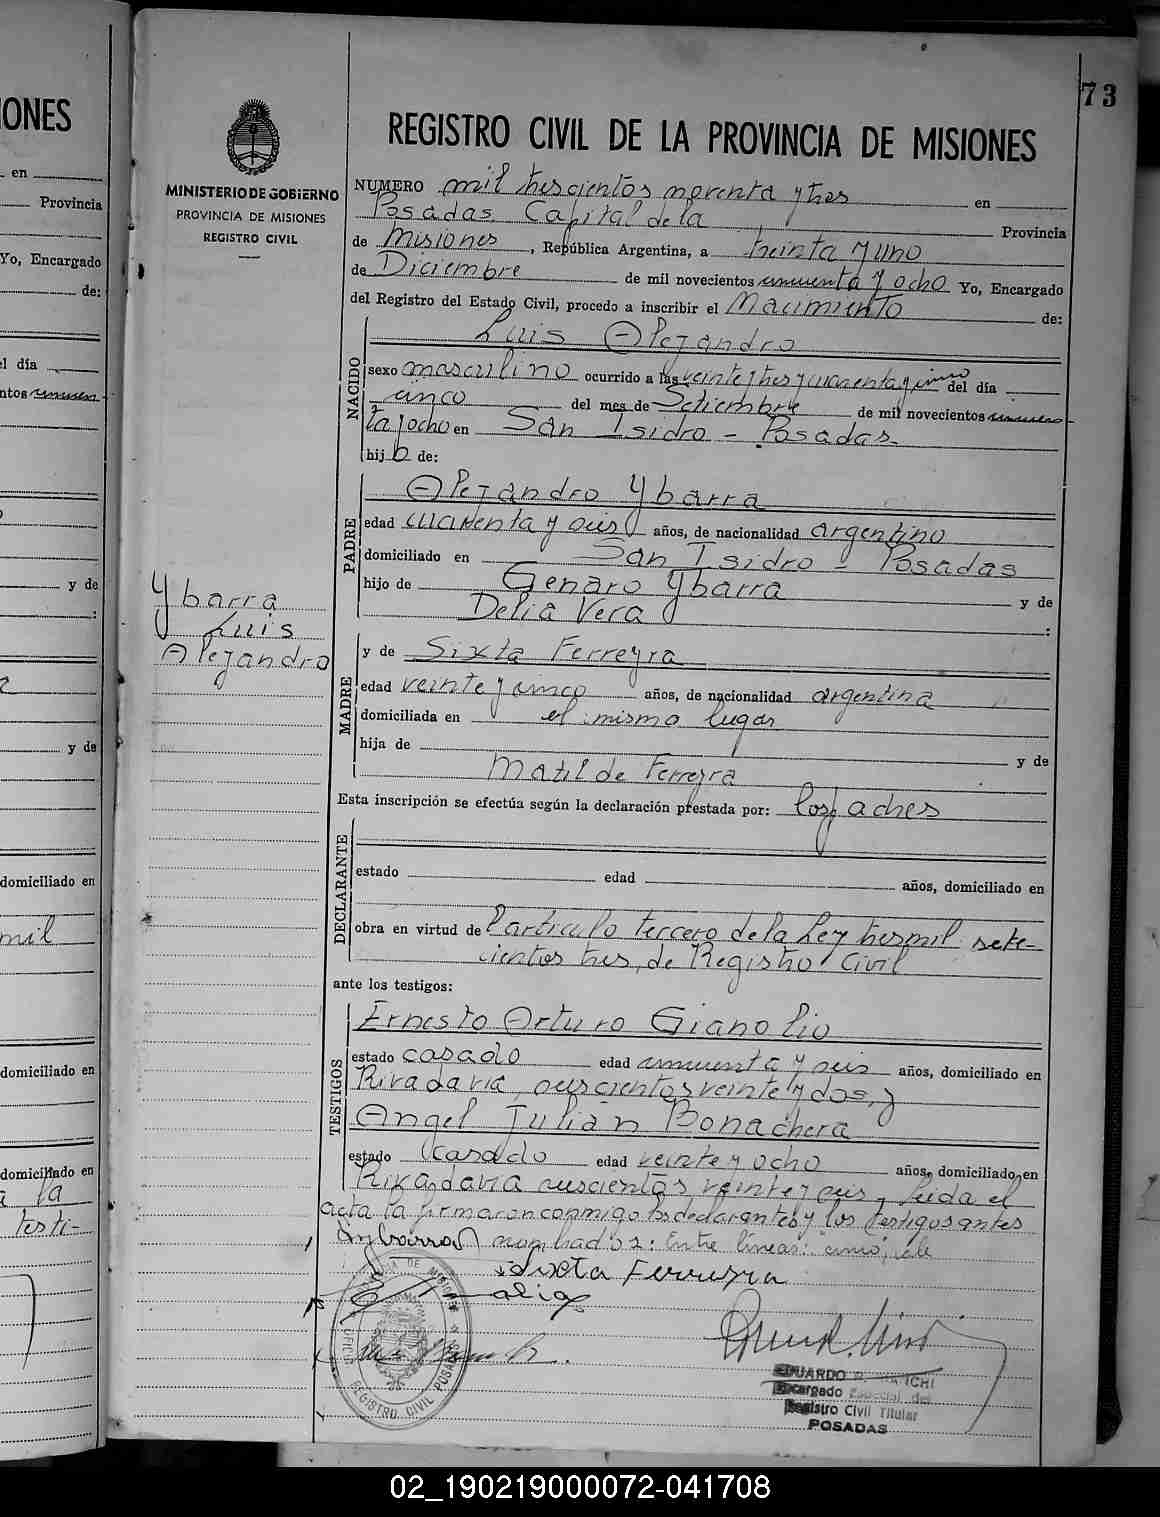 73
IONES
MINISTERIO DE GOBIERNO
PROVINCIA DE MISIONES
REGISTRO CIVIL
REGISTRO CIVIL DE LA PROVINCIA DE MISIONES
NUMERO mil trescientos noventa y tres en
Posadas Capital de la Provincia
de Misiones, República Argentina, a treinta y uno
de Diciembre de mil novecientos cincuenta y ocho Yo, Encargado
del Registro del Estado Civil, procedo a inscribir el Nacimiento de:
Luis Alejandro
NACIDO
sexo masculino ocurrido a las veinte y tres y cuarenta y cinco del día
cinco del mes de Setiembre de mil novecientos cincuen
ta y ocho en San Isidro - Posadas -
hijo de:
Alejandro Ybarra
PADRE
edad cuarenta y seis años, de nacionalidad argentino
domiciliado en San Isidro - Posadas
hijo de Genaro Ybarra y de
Delia Vera :
Ybarra
Luis
Alejandro
y de Sixta Ferreyra
MADRE
edad veinte y cinco años, de nacionalidad argentina
domiciliada en el mismo lugar
hija de y de
Matilde Ferreyra
Esta inscripción se efectúa según la declaración prestada por: los padres
DECLARANTE
estado edad años, domiciliado en
obra en virtud de l'artículo tercero de la Ley tres mil sete-
cientos tres, de Registro Civil
ante los testigos:
Ernesto Arturo Gianolio
TESTIGOS
estado casado edad cincuenta y seis años, domiciliado en
Rivadavia, seiscientos veinte y dos, y
Angel Julián Bonachera
estado casado edad veinte y ocho años, domiciliado en
Rivadavia seiscientos veinte y seis - Leida el
acta la firmaron conmigo los declarantes y los testigos antes
nombrados: Entre líneas: "cinco", vale
Sixta Ferreyra
PROVINCIA DE MISIONES
REGISTRO CIVIL POSADAS
EDUARDO
Encargado Especial del
Registro Civil Titular
POSADAS
en
Provincia
Yo, Encargado
de:
el día
ntos cincuen
y de
:
y de
domiciliado en
mil
domiciliado en
domiciliado en
a la
testi-
02_190219000072-041708